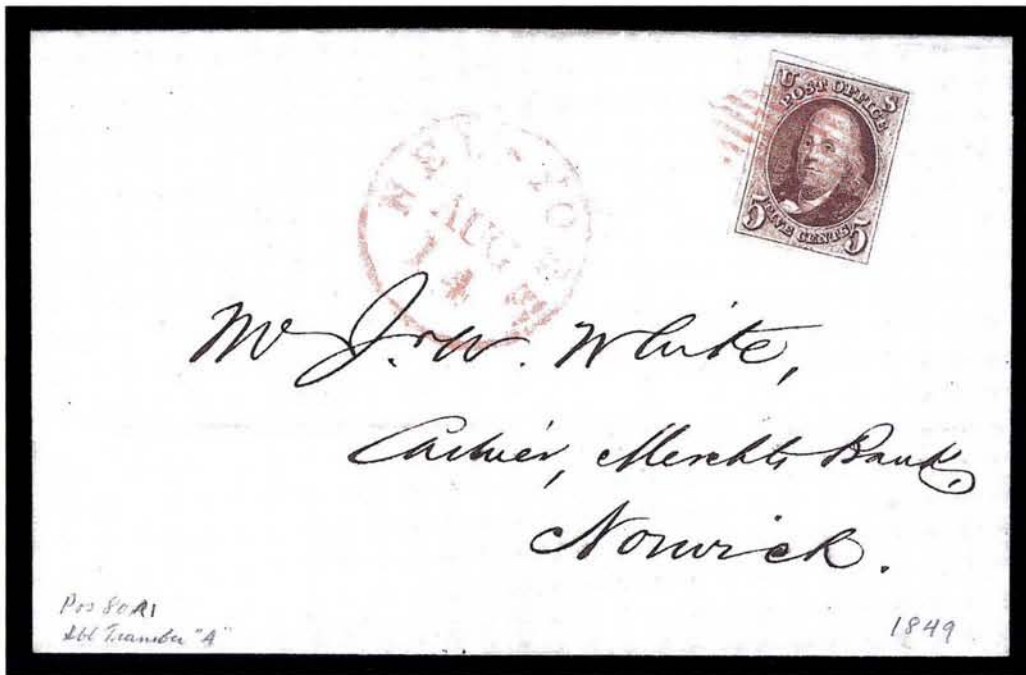 U S
POST OFFICE
5 FIVE CENTS 5
NEW-YORK
AUG
14
Mr J. W. White,
Cashier, Merchts Bank,
Norwich.
Pos 80R1
dbl Transfer "A"
1849